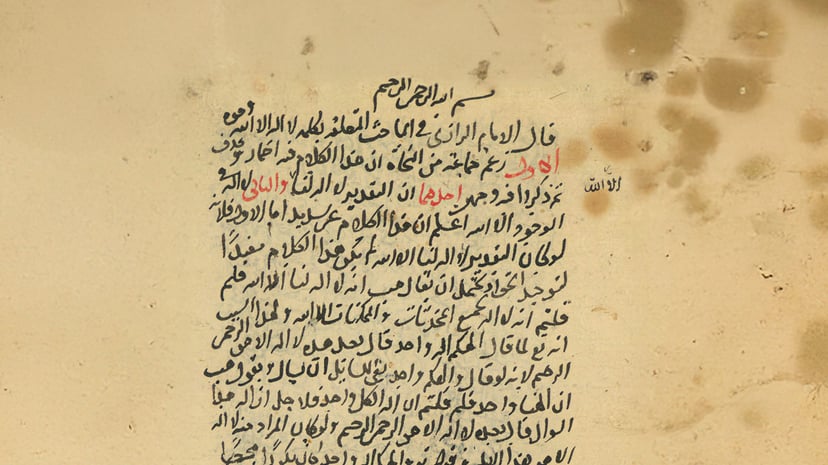 بسم الله الرحمن الرحيم
قال الامام الرازي في المباحث المتعلقة بكلمة لا اله الا الله وهو
الاول زعم جماعة من النحاة ان هذا الكلام فيه اضمار وحذف
ثم ذكروا فيه وجهين احدهما ان التقدير لا اله لنا والثاني لا اله في
الا الله
الوجود الا الله اعلم ان هذا الكلام غير سديد اما الاول فلانه
لو كان التقدير لا اله لنا الا الله لم يكن هذا الكلام مفيدا
لتوحيد الحق اذ يحتمل ان يقال هب انه لا اله لنا الا الله فلم
قلتم انه لا اله لجميع المحدثات والممكنات الا الله ولهذا السبب
انه تع لما قال الهكم اله واحد قال بعده لا اله الا هو الرحمن
الرحيم لانه لو قال والهكم واحد بقي لسائل ان يسال ويقول هب
ان الهنا واحد فلم قلتم ان اله الكل واحد فلاجل ازالة هذا
السوال قال بعده لا اله الا هو الرحمن الرحيم ولو كان المراد منه لا اله